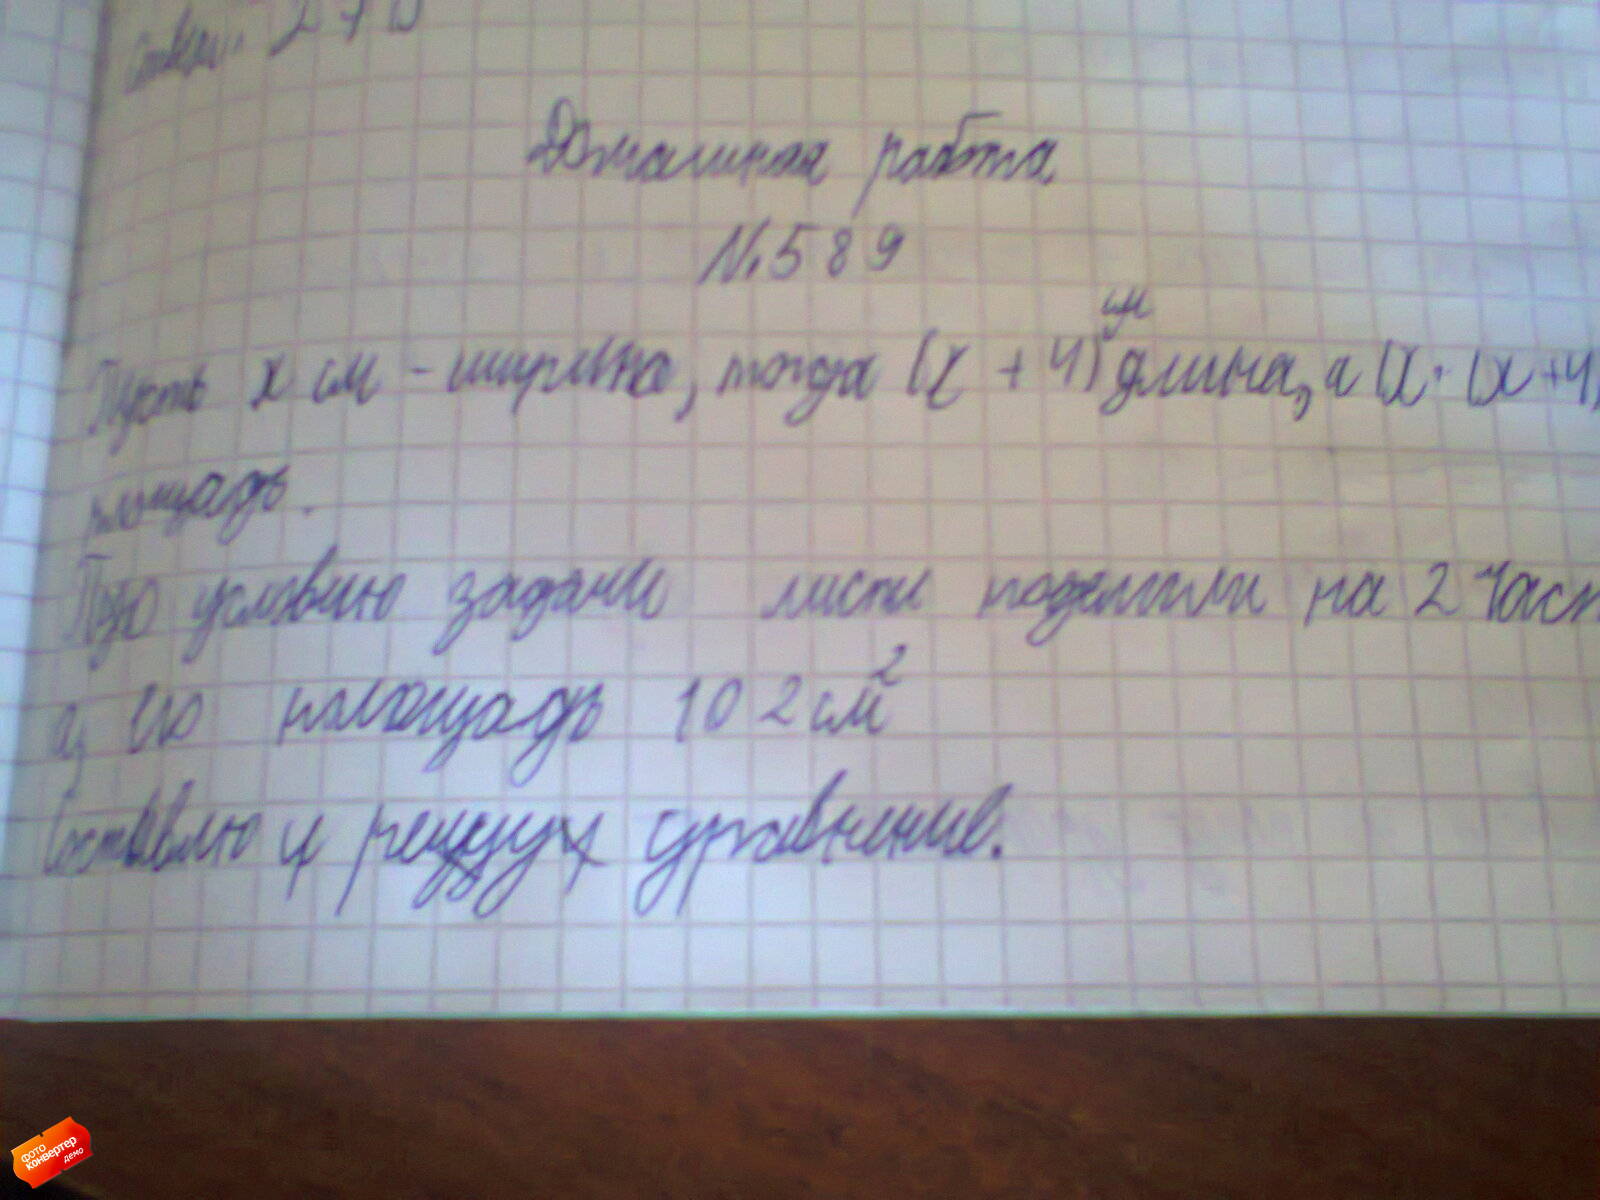 270
Домашняя работа
№589
см
Пусть х см - ширина, тогда (х + 4) длина, а (х · (х +4)
площадь.
По условию задачи листа поделили на 2 част
а их площадь 102 см²
Составлю и решу уравнение.
фото
конвертер
демо